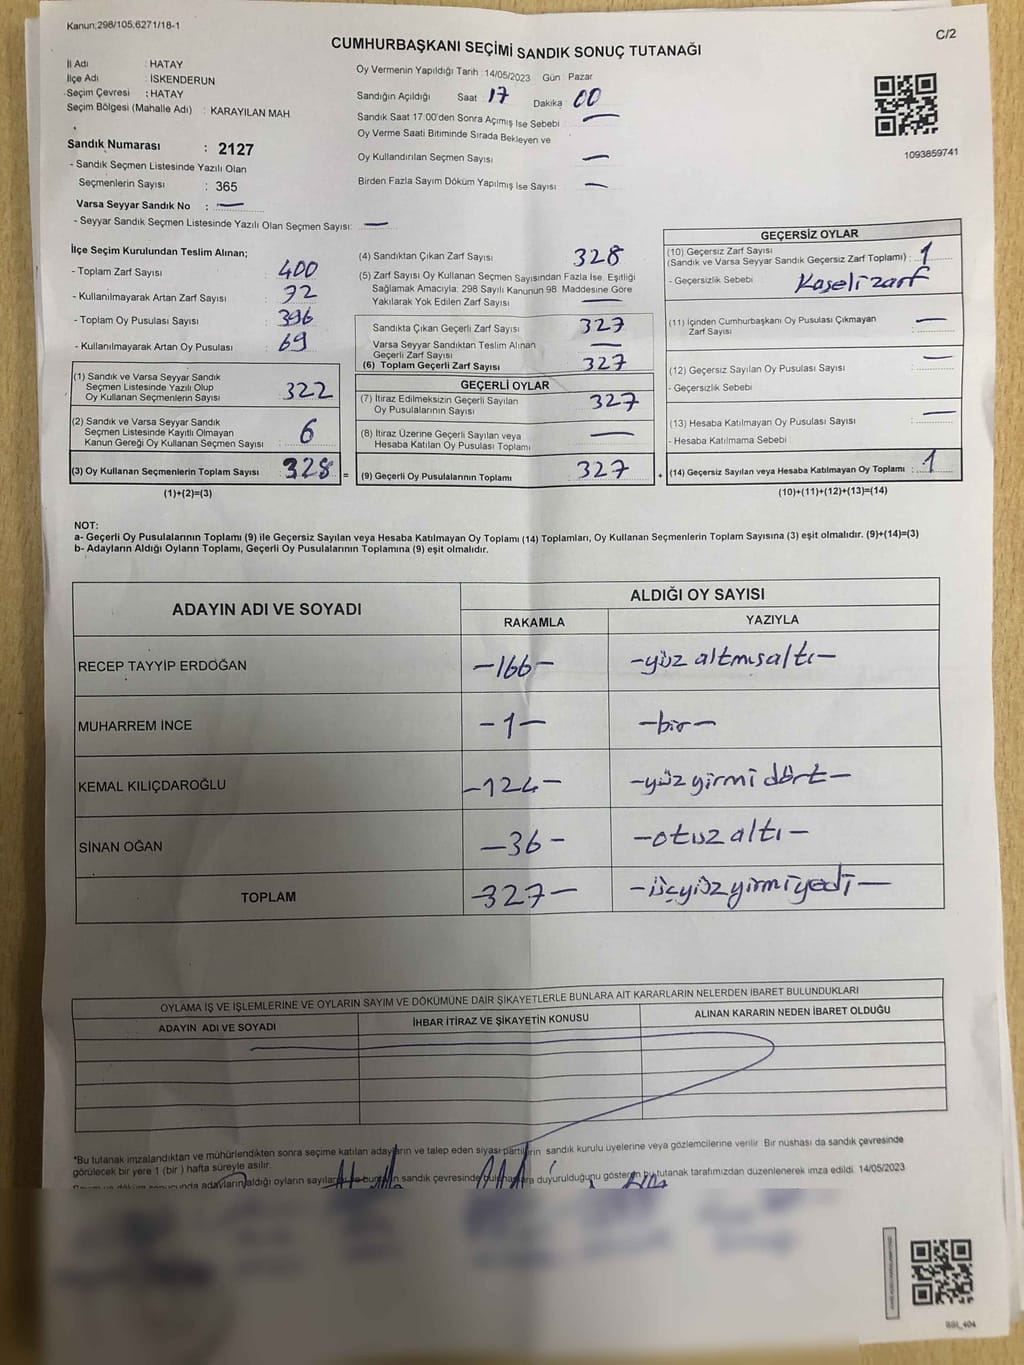 Kanun:298/105,6271/18-1
C/2
CUMHURBAŞKANI SEÇİMİ SANDIK SONUÇ TUTANAĞI
İl Adı : HATAY
İlçe Adı : İSKENDERUN
Seçim Çevresi : HATAY
Seçim Bölgesi (Mahalle Adı) : KARAYILAN MAH
Sandık Numarası : 2127
- Sandık Seçmen Listesinde Yazılı Olan
Seçmenlerin Sayısı : 365
Varsa Seyyar Sandık No : —
- Seyyar Sandık Seçmen Listesinde Yazılı Olan Seçmen Sayısı: —
Oy Vermenin Yapıldığı Tarih : 14/05/2023 Gün : Pazar
Sandığın Açıldığı Saat 17 Dakika 00
Sandık Saat 17:00'den Sonra Açımış İse Sebebi —
Oy Verme Saati Bitiminde Sırada Bekleyen ve
Oy Kullandırılan Seçmen Sayısı —
Birden Fazla Sayım Döküm Yapılmış İse Sayısı —
1093859741
İlçe Seçim Kurulundan Teslim Alınan;
- Toplam Zarf Sayısı : 400
- Kullanılmayarak Artan Zarf Sayısı : 72
- Toplam Oy Pusulası Sayısı : 396
- Kullanılmayarak Artan Oy Pusulası : 69
(1) Sandık ve Varsa Seyyar Sandık
Seçmen Listesinde Yazılı Olup
Oy Kullanan Seçmenlerin Sayısı : 322
(2) Sandık ve Varsa Seyyar Sandık
Seçmen Listesinde Kayıtlı Olmayan
Kanun Gereği Oy Kullanan Seçmen Sayısı : 6
(3) Oy Kullanan Seçmenlerin Toplam Sayısı : 328 =
(1)+(2)=(3)
(4) Sandıktan Çıkan Zarf Sayısı 328
(5) Zarf Sayısı Oy Kullanan Seçmen Sayısından Fazla İse, Eşitliği
Sağlamak Amacıyla; 298 Sayılı Kanunun 98. Maddesine Göre
Yakılarak Yok Edilen Zarf Sayısı : —
Sandıkta Çıkan Geçerli Zarf Sayısı : 327
Varsa Seyyar Sandıktan Teslim Alınan
Geçerli Zarf Sayısı —
(6) Toplam Geçerli Zarf Sayısı : 327
GEÇERLİ OYLAR
(7) İtiraz Edilmeksizin Geçerli Sayılan
Oy Pusulalarının Sayısı : 327
(8) İtiraz Üzerine Geçerli Sayılan veya
Hesaba Katılan Oy Pusulası Toplamı : —
(9) Geçerli Oy Pusulalarının Toplamı : 327 +
GEÇERSİZ OYLAR
(10) Geçersiz Zarf Sayısı
(Sandık ve Varsa Seyyar Sandık Geçersiz Zarf Toplamı) : 1
- Geçersizlik Sebebi : Kaşeli zarf
(11) İçinden Cumhurbaşkanı Oy Pusulası Çıkmayan
Zarf Sayısı : —
(12) Geçersiz Sayılan Oy Pusulası Sayısı : —
- Geçersizlik Sebebi
(13) Hesaba Katılmayan Oy Pusulası Sayısı : —
- Hesaba Katılmama Sebebi
(14) Geçersiz Sayılan veya Hesaba Katılmayan Oy Toplamı : 1
(10)+(11)+(12)+(13)=(14)
NOT:
a- Geçerli Oy Pusulalarının Toplamı (9) ile Geçersiz Sayılan veya Hesaba Katılmayan Oy Toplamı (14) Toplamları, Oy Kullanan Seçmenlerin Toplam Sayısına (3) eşit olmalıdır. (9)+(14)=(3)
b- Adayların Aldığı Oyların Toplamı, Geçerli Oy Pusulalarının Toplamına (9) eşit olmalıdır.
ADAYIN ADI VE SOYADI ALDIĞI OY SAYISI
RAKAMLA YAZIYLA
RECEP TAYYİP ERDOĞAN -166- -yüz altmışaltı-
MUHARREM İNCE -1- -bir-
KEMAL KILIÇDAROĞLU -124- -yüz yirmi dört-
SİNAN OĞAN -36- -otuz altı-
TOPLAM -327- -üçyüz yirmi yedi-
OYLAMA İŞ VE İŞLEMLERİNE VE OYLARIN SAYIM VE DÖKÜMÜNE DAİR ŞİKAYETLERLE BUNLARA AİT KARARLARIN NELERDEN İBARET BULUNDUKLARI
ADAYIN ADI VE SOYADI İHBAR İTİRAZ VE ŞİKAYETİN KONUSU ALINAN KARARIN NEDEN İBARET OLDUĞU
*Bu tutanak imzalandıktan ve mühürlendikten sonra seçime katılan adayların ve talep eden siyasi partilerin sandık kurulu üyelerine veya gözlemcilerine verilir. Bir nüshası da sandık çevresinde
görülecek bir yere 1 (bir) hafta süreyle asılır.
Sayım ve döküm sonucunda adayların aldığı oyların sayıları ile bunların sandık çevresinde bulunanlara duyurulduğunu gösteren bu tutanak tarafımızdan düzenlenerek imza edildi. 14/05/2023